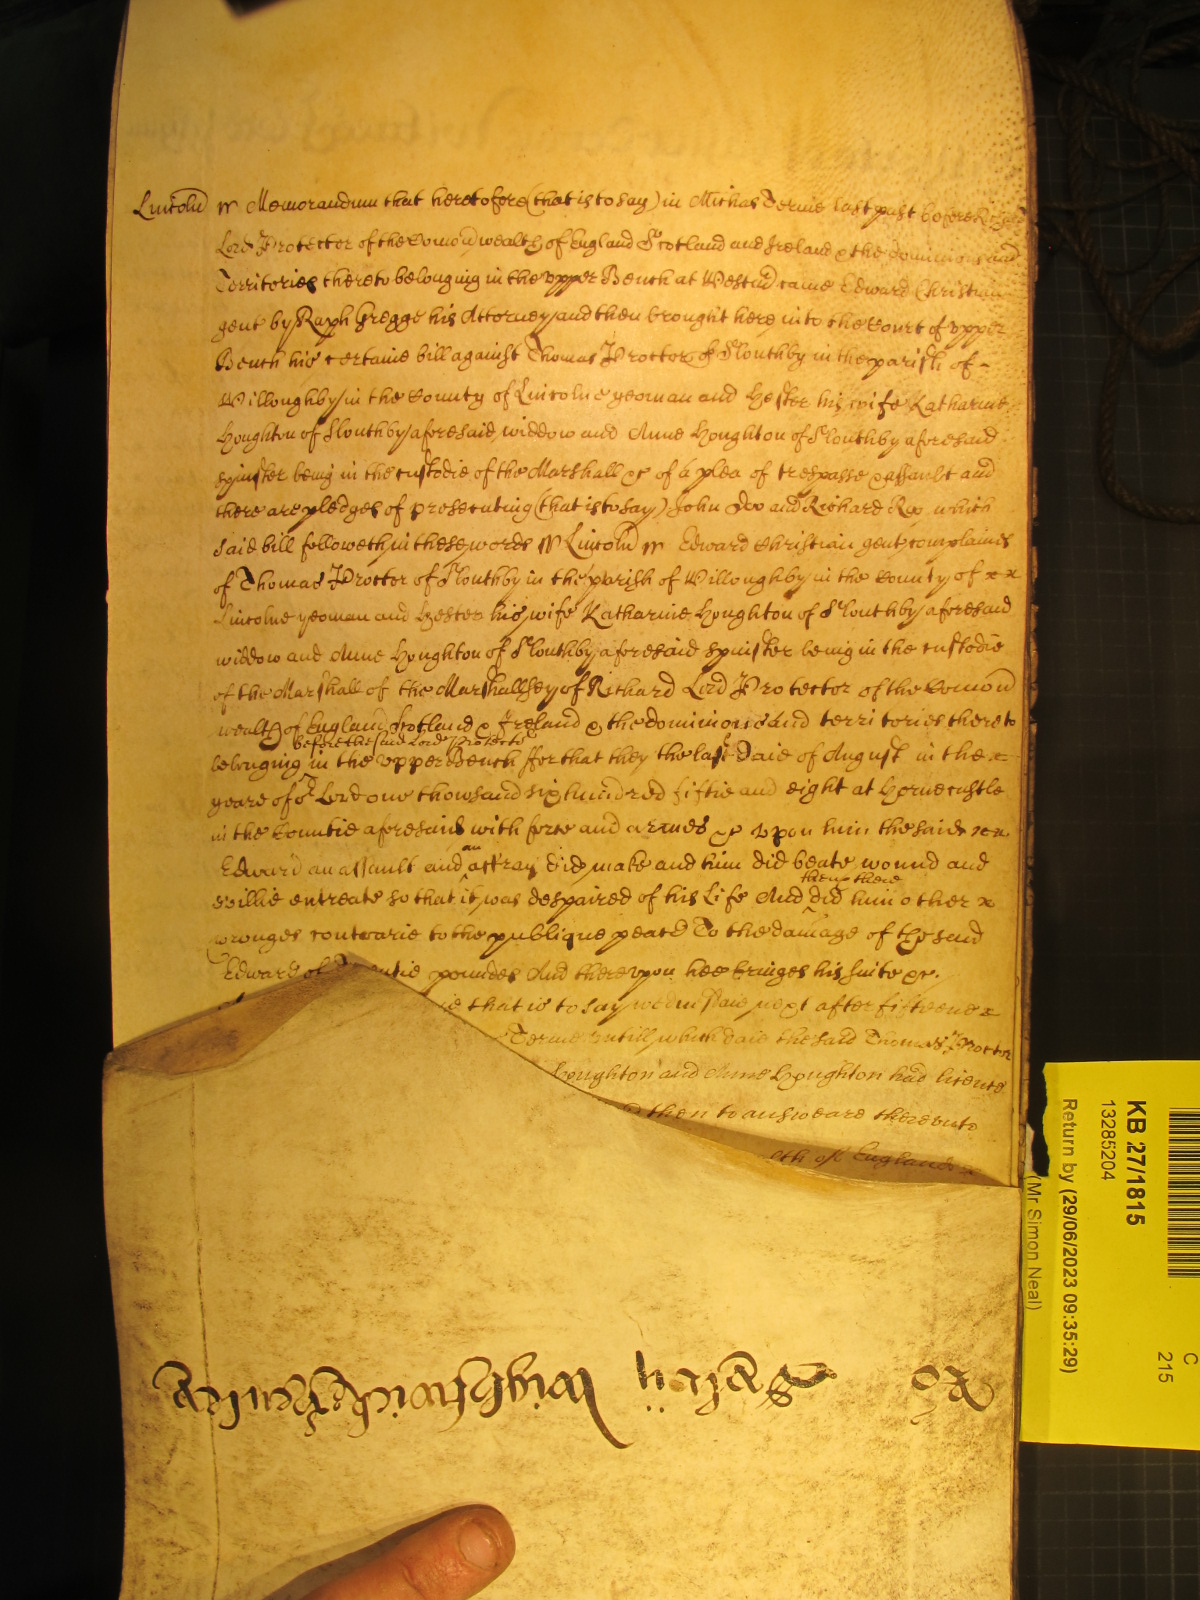 Lincoln ss Memorandum that heretofore (that is to say) in Michas Terme last past before Richard
Lord Protector of the Comon wealth of England Scotland and Ireland & the dominions and
Territories thereto belonging in the upper Bench at Westm came Edward Christian
gent by Raph Gregge his Attorney and then brought here into the Court of upper
Bench his certaine bill against Thomas Procter of Slouthby in the parish of -
Willoughby in the County of Lincolne yeoman and Hester his wife Katharine
Houghton of Slouthby aforesaid widdow and Anne Houghton of Slouthby aforesaid
spinster being in the custodie of the Marshall &c of a plea of trespasse & assault and
there are pledges of prosecuting (that is to say) John Doo and Richard Roo which
said bill followeth in these words ss Lincoln ss Edward Christian gent complaines
of Thomas Procter of Slouthby in the parish of Willoughby in the County of x x
Lincolne yeoman and Hester his wife Katharine Houghton of Slouthby aforesaid
widdow and Anne Houghton of Slouthby aforesaid spinster being in the custodie
of the Marshall of the Marshallsey of Richard Lord Protector of the Comon
wealth of England Scotland & Ireland & the dominions and territories thereto
before the said Lord Protector
belonging in the upper Bench ffor that they the last Daie of August in the x
yeare of or Lord one thowsand six hundred fiftie and eight at Hornecastle
in the Countie aforesaid with force and armes &c upon him the said x x
Edward an assault and an affray did make and him did beate wound and
then & there
evillie entreate so that it was despaired of his Life And did him other x
wronges contrarie to the publique peace To the damage of the said
Edward of pounds And thereupon hee bringes his suite &c.
that is to say wednesdaie next after fifteene x
Terme untill which daie the said Thomas Procter
Houghton and Anne Houghton had licence
then to answeare thereunto
of England x
KB 27/1815
13285204
Return by (29/06/2023 09:35:29)
(Mr Simon Neal)
C
215